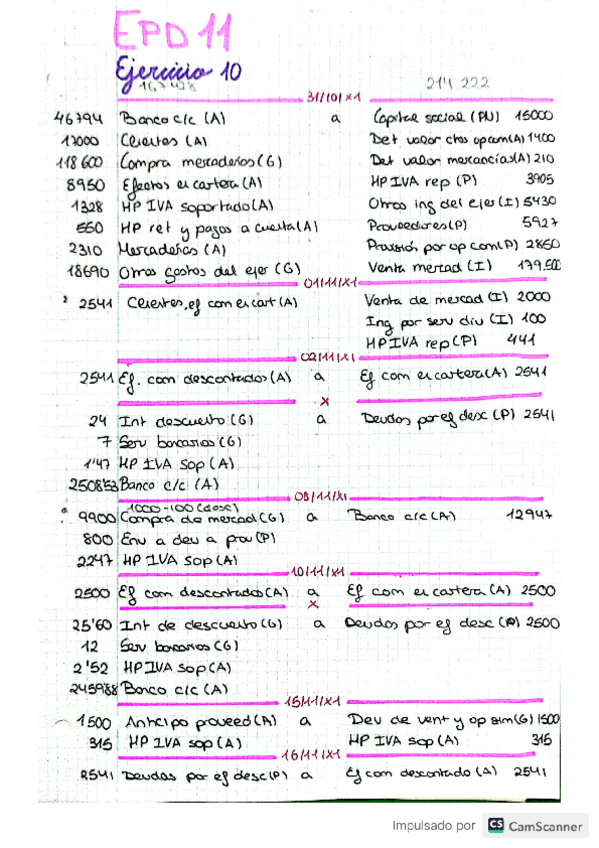 EPD 11
Ejercicio 10
167428 214.222
31/10/X1
46794 Banco c/c (A) a Capital social (PN) 15000
17000 Clientes (A) Det valor ctos op com (A) 1400
118600 Compra mercaderias (G) Det valor mercancias (A) 210
8950 Efectos en cartera (A) HP IVA rep (P) 3905
1328 HP IVA soportado (A) Otros ing del ejer (I) 5430
550 HP ret y pagos a cuenta (A) Proveedores (P) 5927
2310 Mercaderias (A) Provisión por op com (P) 2850
18690 Otros gastos del ejer (G) Venta mercad (I) 179.500
01/11/X1
2541 Clientes, ef com en cart (A) Venta de mercad (I) 2000
Ing por serv div (I) 100
HP IVA rep (P) 441
02/11/X1
2541 Ef. com descontados (A) a Ef com en cartera (A) 2541
x
24 Int descuento (G) a Deudas por ef desc (P) 2541
7 Serv bancarios (G)
1'47 HP IVA sop (A)
2508'53 Banco c/c (A)
08/11/X1
1000-100 (desc)
9900 Compra de mercad (G) a Banco c/c (A) 12947
800 Env a dev a prov (P)
2247 HP IVA sop (A)
10/11/X1
2500 Ef com descontados (A) a Ef com en cartera (A) 2500
x
25'60 Int de descuento (G) a Deudas por ef desc (P) 2500
12 Serv bancarios (G)
2'52 HP IVA sop (A)
2459'88 Banco c/c (A)
15/11/X1
1500 Anticipo proveed (A) a Dev de vent y op sim (G) 1500
315 HP IVA sop (A) HP IVA sop (A) 315
16/11/X1
2541 Deudas por ef desc (P) a Ef com descontado (A) 2541
Impulsado por CS CamScanner